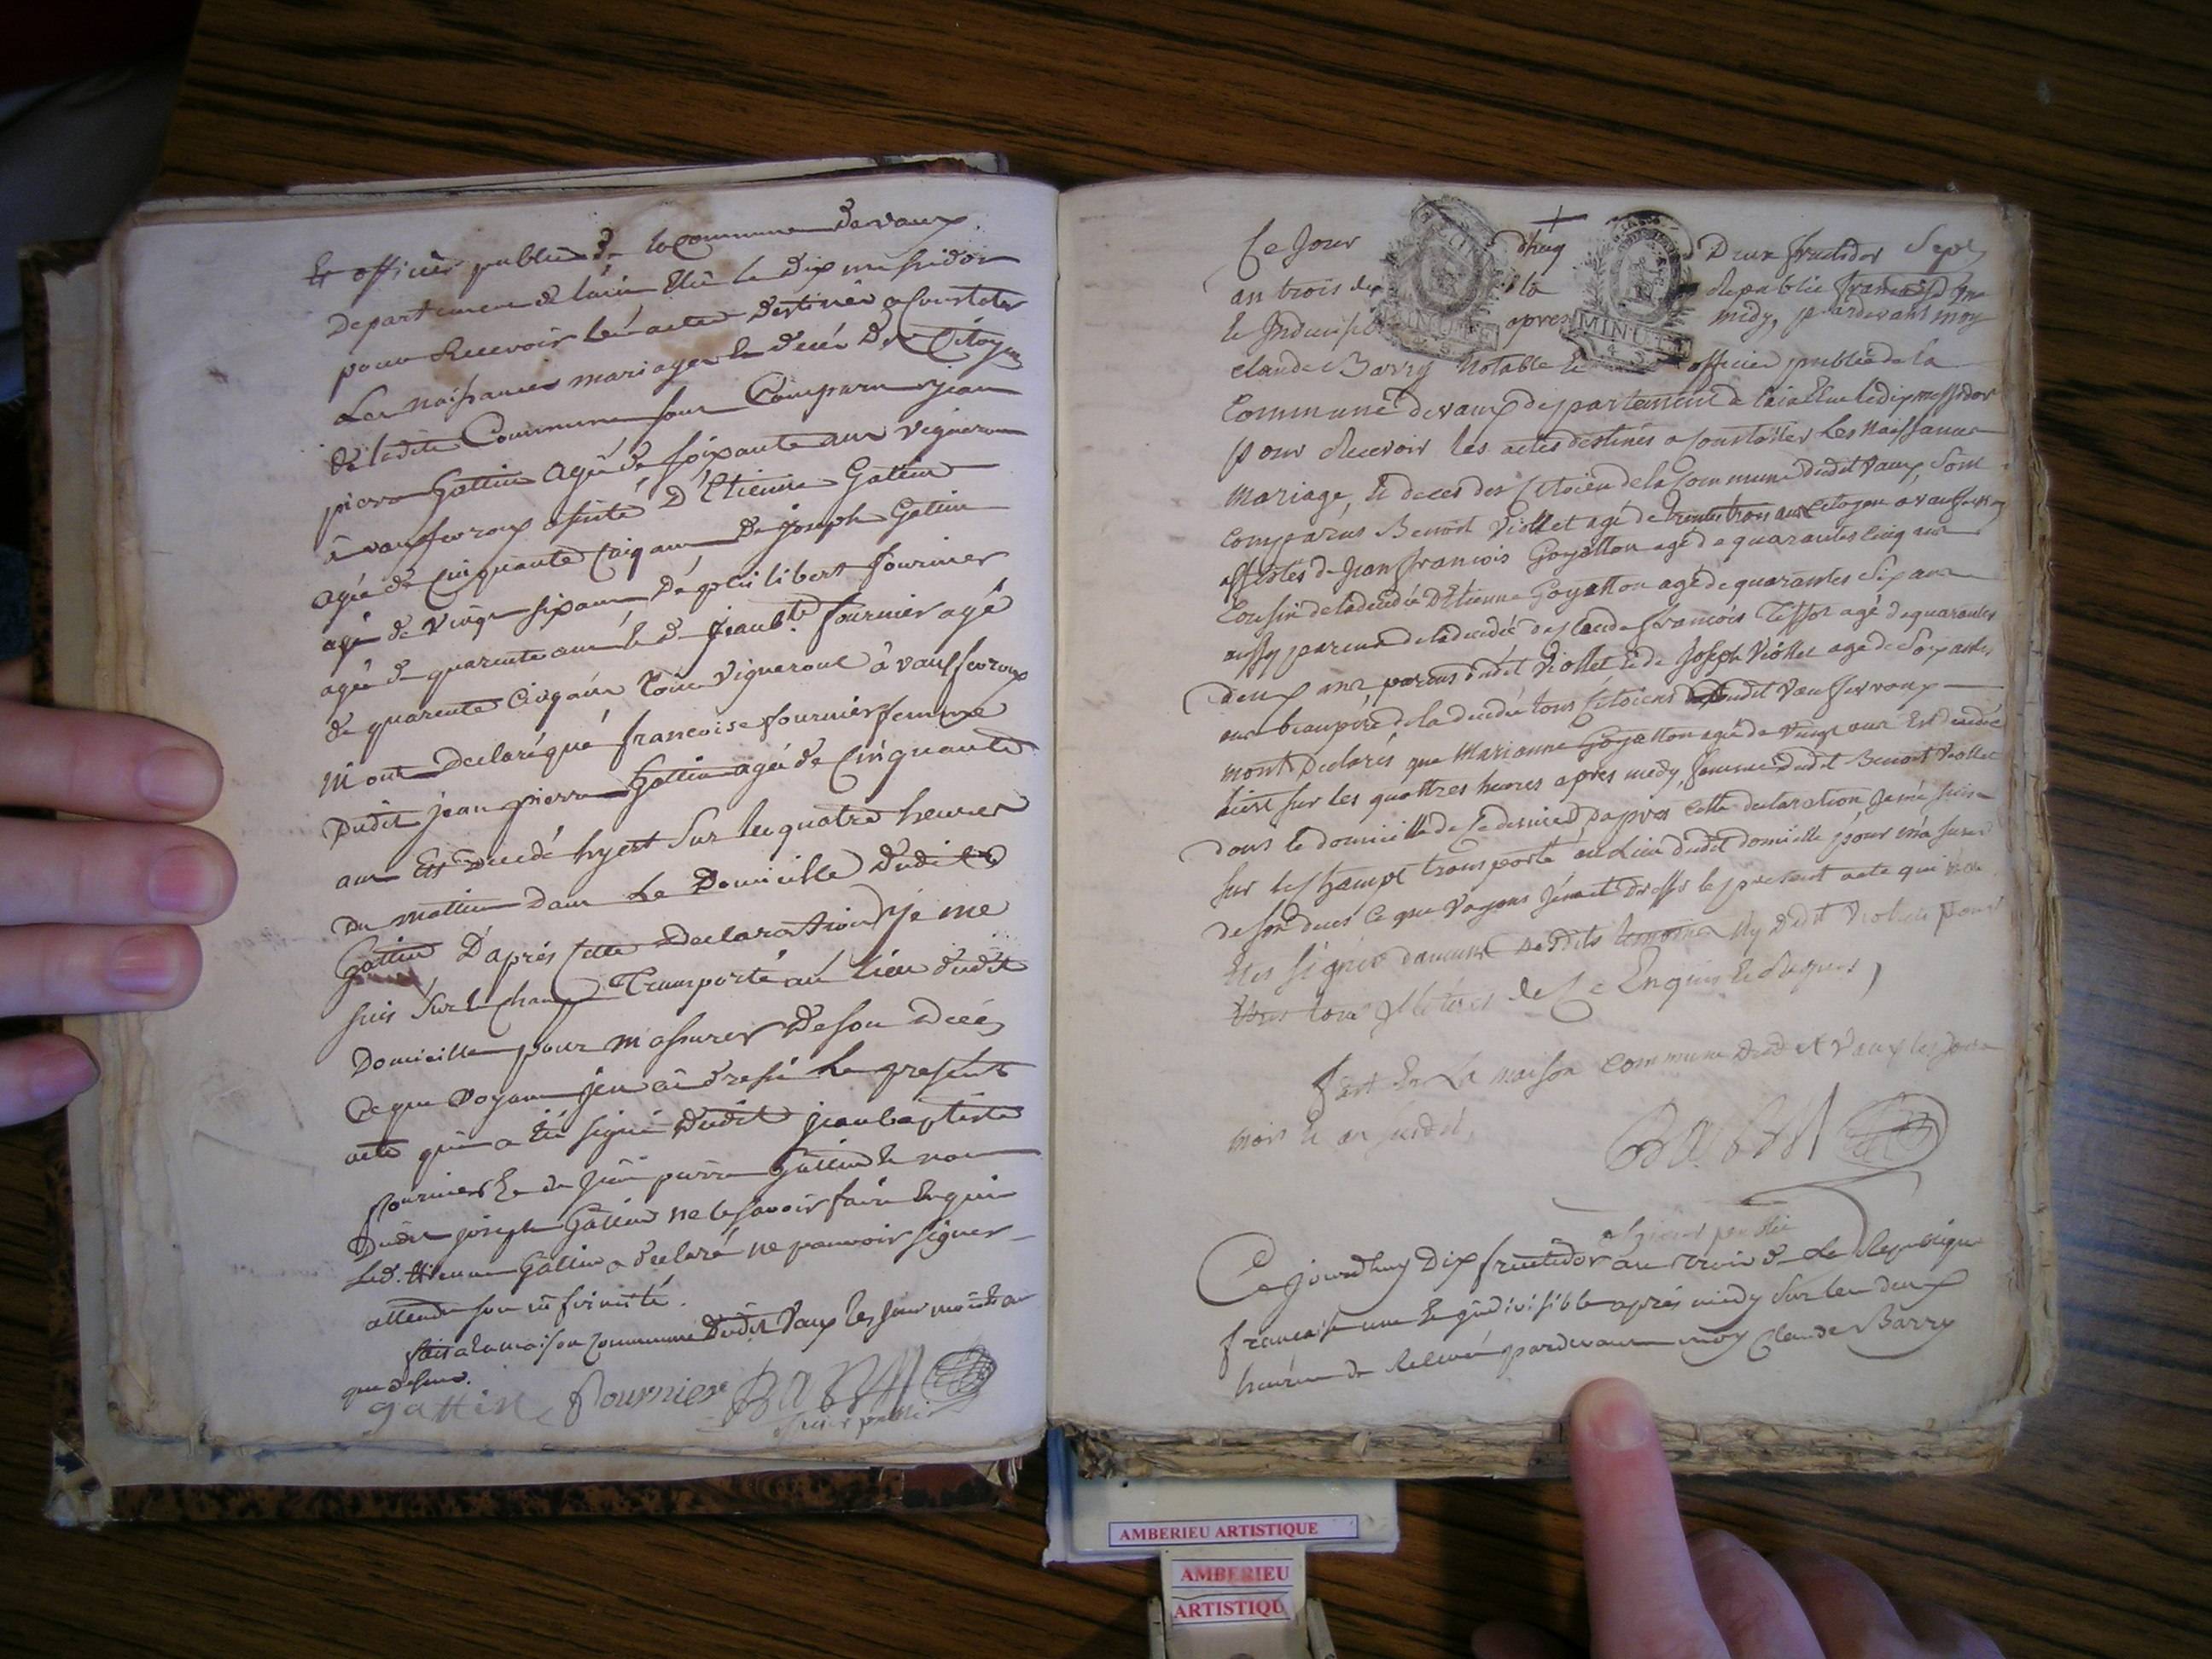 Et officier public de la Commune de vaux
Departement de lain Elu le Dix messidor
pour Recevoir les actes Destinés a Constater
Les naissances mariages et décés Des Citoyens
de ladite Commune sont Comparu jean
pierre Gottin agé de soixante ans vigneron
à vauxfevroux assisté D'Etienne Gottin
agée de Cinquante Cinq ans De joseph Gottin
agé de vingt six ans De philibert fournier
agée de quarente ans et de jean bte fournier agé
de quarente Cinq ans tous vignerons à vauxfevroux
m'ont Declaré que francoise fournier femme
Dudit jean pierre Gottin agée de Cinquante
ans Est Decedé hyert Sur les quatre heures
Du mattin Dans Le Domicille Dudit
Gottin D'aprés Cette Declaration je me
suis Sur le champ Transporté au lieu dudit
Domicille pour m'assurer De son Décés
Ce que voyant j'en ai dressé Le present
acte qui a Eté signé Dudit jean baptiste
fournier Et de jean pierre Gottin Et non
Dudit joseph Gottin ne le savoir faire Enquis
Led. Etienne Gottin a declaré ne pouvoir signer
attendu son infirmité.
fait a la maison Commune Dudit Vaux les jour mois et an
que dessus.
gottin fournier BARRY
officier public
Ce Jour dhuy Deux fructidor Sept
an trois de la Republic francaise une
et Indivisible apres midy, pardevant moy
claude Barry Notable et officier public de la
Commune de vaux departement de lain Elue le dix messidor
pour Recevoir les actes destinés a constatter Les Naissance
mariage, et deces des Citoien de la Commune dudit Vaux, Sont
comparus Benoit Viollet agé de trente trois ans Citoyen a vauxfevroux
assistés de Jean francois Goyatton agé de quarantes cinq ans
Cousin de ladecedée D'Etienne Goyatton agé de quarantes Six ans
aussy parent de ladecedée de Claude francois Tissot agé de quarantes
Deux ans parens dudit Viollet et de Joseph Viollet agé de Soixantes
ans beaupére de la decedée tous Citoiens dudit Vauxfevroux
mont Declarés que Marianne Goyatton agé de Vingt ans Est decedée
hiert sur les quattres heures apres medy, femme dudit Benoit Viollet
dans le domicille de Ce dernier, D'apres cette declaration Je me suis
sur le Champt transporté au Lieu dudit domicille pour m'assurer
de son deces Ce que Voyans Jen ait Dressé le present acte qui
Etés signés d'aucuns desdits temoins Ny Dudit Viollet pour
Etres tous Illeteres de Ce Enquis Et Requis,
Fait En La maison Commune Dudit Vaux les Jour
mois et an susdit,
BARRY
officier public
Ce jourdhuy Dix fructidor an trois de La Republique
francaise une Et indivisible aprés midy Sur les deux
heures de Relevé pardevant moy Claude Barry
MINUTE
MINUTE
AMBERIEU ARTISTIQUE
AMBERIEU
ARTISTIQU